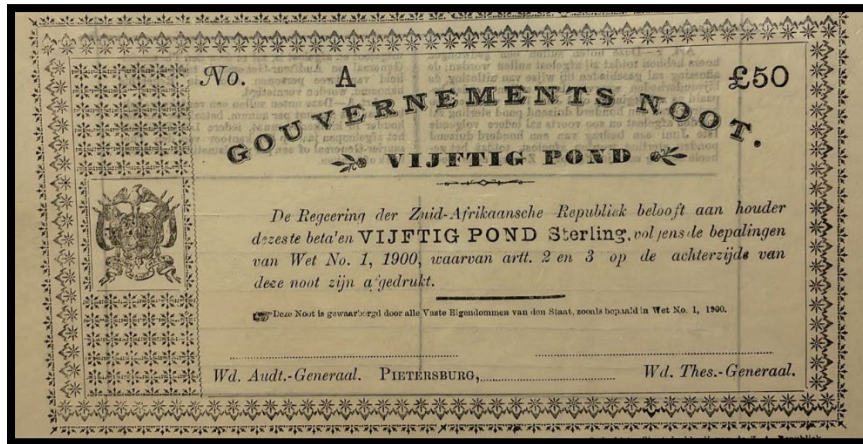 No. A £50
GOUVERNEMENTS NOOT.
VIJFTIG POND
De Regeering der Zuid-Afrikaansche Republiek belooft aan houder
dezes te beta'en VIJFTIG POND Sterling, volgens de bepalingen
van Wet No. 1, 1900, waarvan artt. 2 en 3 op de achterzijde van
deze noot zijn afgedrukt.
Deze Noot is gewaarborgd door alle Vaste Eigendommen van den Staat, zooals bepaald in Wet No. 1, 1900.
Wd. Audt.-Generaal. PIETERSBURG, Wd. Thes.-Generaal.